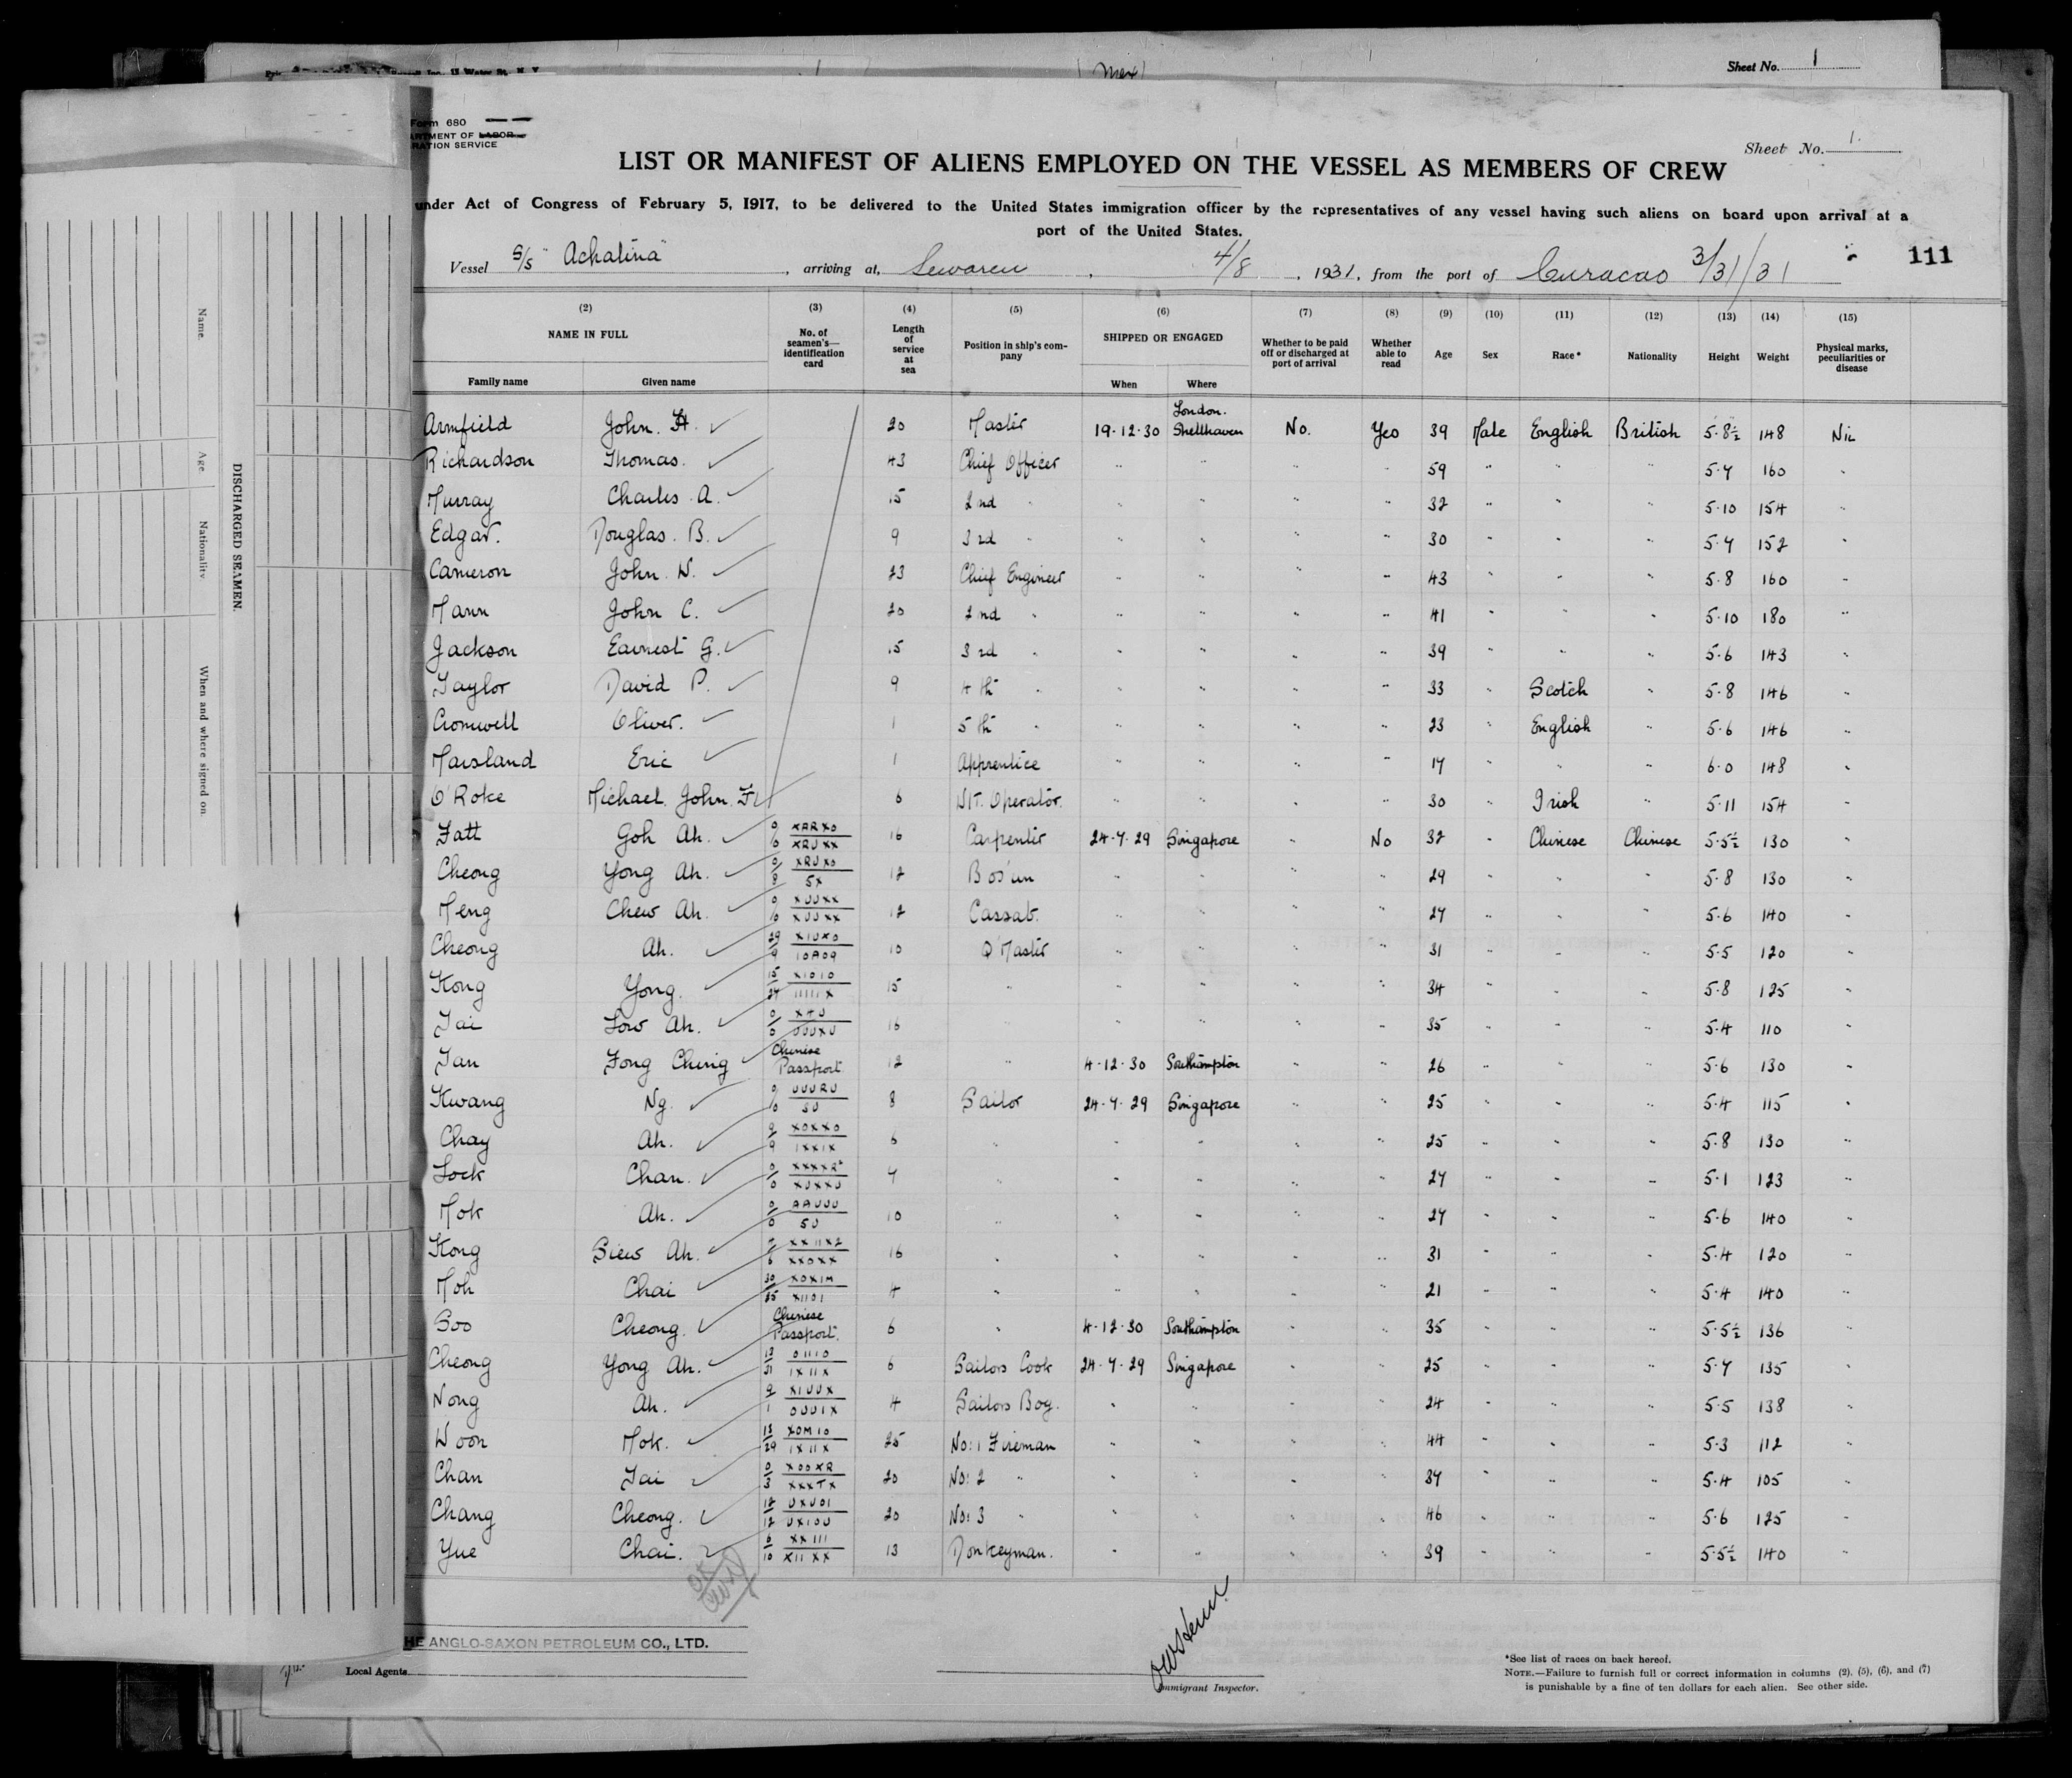 Sheet No. 1
Form 680
LABOR
SERVICE
Sheet No. 1.
LIST OR MANIFEST OF ALIENS EMPLOYED ON THE VESSEL AS MEMBERS OF CREW
under Act of Congress of February 5, 1917, to be delivered to the United States immigration officer by the representatives of any vessel having such aliens on board upon arrival at a
port of the United States.
Vessel S/S "Achatina", arriving at, Sewaren, 4/8, 1931, from the port of Curacao 3/31/31 111
(2) (3) (4) (5) (6) (7) (8) (9) (10) (11) (12) (13) (14) (15)
NAME IN FULL No. of seamen's— identification card Length of service at sea Position in ship's company SHIPPED OR ENGAGED Whether to be paid off or discharged at port of arrival Whether able to read Age Sex Race* Nationality Height Weight Physical marks, peculiarities or disease
Family name Given name When Where
Armfield John. H. 20 Master 19-12-30 London. Shellhaven No. Yes 39 Male English British 5-8½ 148 Nil
Richardson Thomas. 43 Chief Officer " " " " 59 " " " 5-7 160 "
Murray Charles A. 15 2nd " " " " " 32 " " " 5-10 154 "
Edgar. Douglas. B. 9 3rd " " " " " 30 " " " 5-7 152 "
Cameron John. W. 23 Chief Engineer " " " " 43 " " " 5-8 160 "
Mann John C. 20 2nd " " " " " 41 " " " 5-10 180 "
Jackson Earnest G. 15 3rd " " " " " 39 " " " 5-6 143 "
Taylor David P. 9 4th " " " " " 33 " Scotch " 5-8 146 "
Cromwell Oliver. 1 5th " " " " " 23 " English " 5-6 146 "
Marsland Eric 1 Apprentice " " " " 17 " " " 6-0 148 "
O'Roke Michael. John. 6 W/T. Operator. " " " " 30 " Irish " 5-11 154 "
Fatt Goh Ah. 16 Carpenter 24-7-29 Singapore " No 32 " Chinese Chinese 5-5½ 130 "
Cheong Yong Ah. 12 Bos'un " " " " 29 " " " 5-8 130 "
Meng Chew Ah. 12 Cassab. " " " " 27 " " " 5-6 140 "
Cheong Ah. 10 Q'Master " " " " 31 " " " 5-5 120 "
Kong Yong. 15 " " " " " 34 " " " 5-8 125 "
Tai Low Ah. 16 " " " " " 35 " " " 5-4 110 "
Tan Fong Ching Chinese Passport. 12 " 4-12-30 Southampton " " 26 " " " 5-6 130 "
Kwang Ng. 8 Sailor 24-7-29 Singapore " " 25 " " " 5-4 115 "
Chay Ah. 6 " " " " " 25 " " " 5-8 130 "
Lock Chan. 7 " " " " " 27 " " " 5-1 123 "
Mok Ah. 10 " " " " " 27 " " " 5-6 140 "
Kong Siew Ah. 16 " " " " " 31 " " " 5-4 120 "
Moh Chai 4 " " " " " 21 " " " 5-4 140 "
Soo Cheong. Chinese Passport. 6 " 4-12-30 Southampton " " 35 " " " 5-5½ 136 "
Cheong Yong Ah. 6 Sailors Cook 24-7-29 Singapore " " 25 " " " 5-7 135 "
Nong Ah. 4 Sailors Boy. " " " " 24 " " " 5-5 138 "
Woon Mok. 25 No: 1 Fireman " " " " 44 " " " 5-3 112 "
Chan Tai 20 No: 2 " " " " " 37 " " " 5-4 105 "
Chang Cheong. 20 No: 3 " " " " " 46 " " " 5-6 125 "
Yue Chai. 13 Donkeyman. " " " " 39 " " " 5-5½ 140 "
THE ANGLO-SAXON PETROLEUM CO., LTD.
Local Agents
Immigrant Inspector.
*See list of races on back hereof.
NOTE.—Failure to furnish full or correct information in columns (2), (5), (6), and (7)
is punishable by a fine of ten dollars for each alien. See other side.
DISCHARGED SEAMEN.
Name.
Age.
Nationality.
When and where signed on.